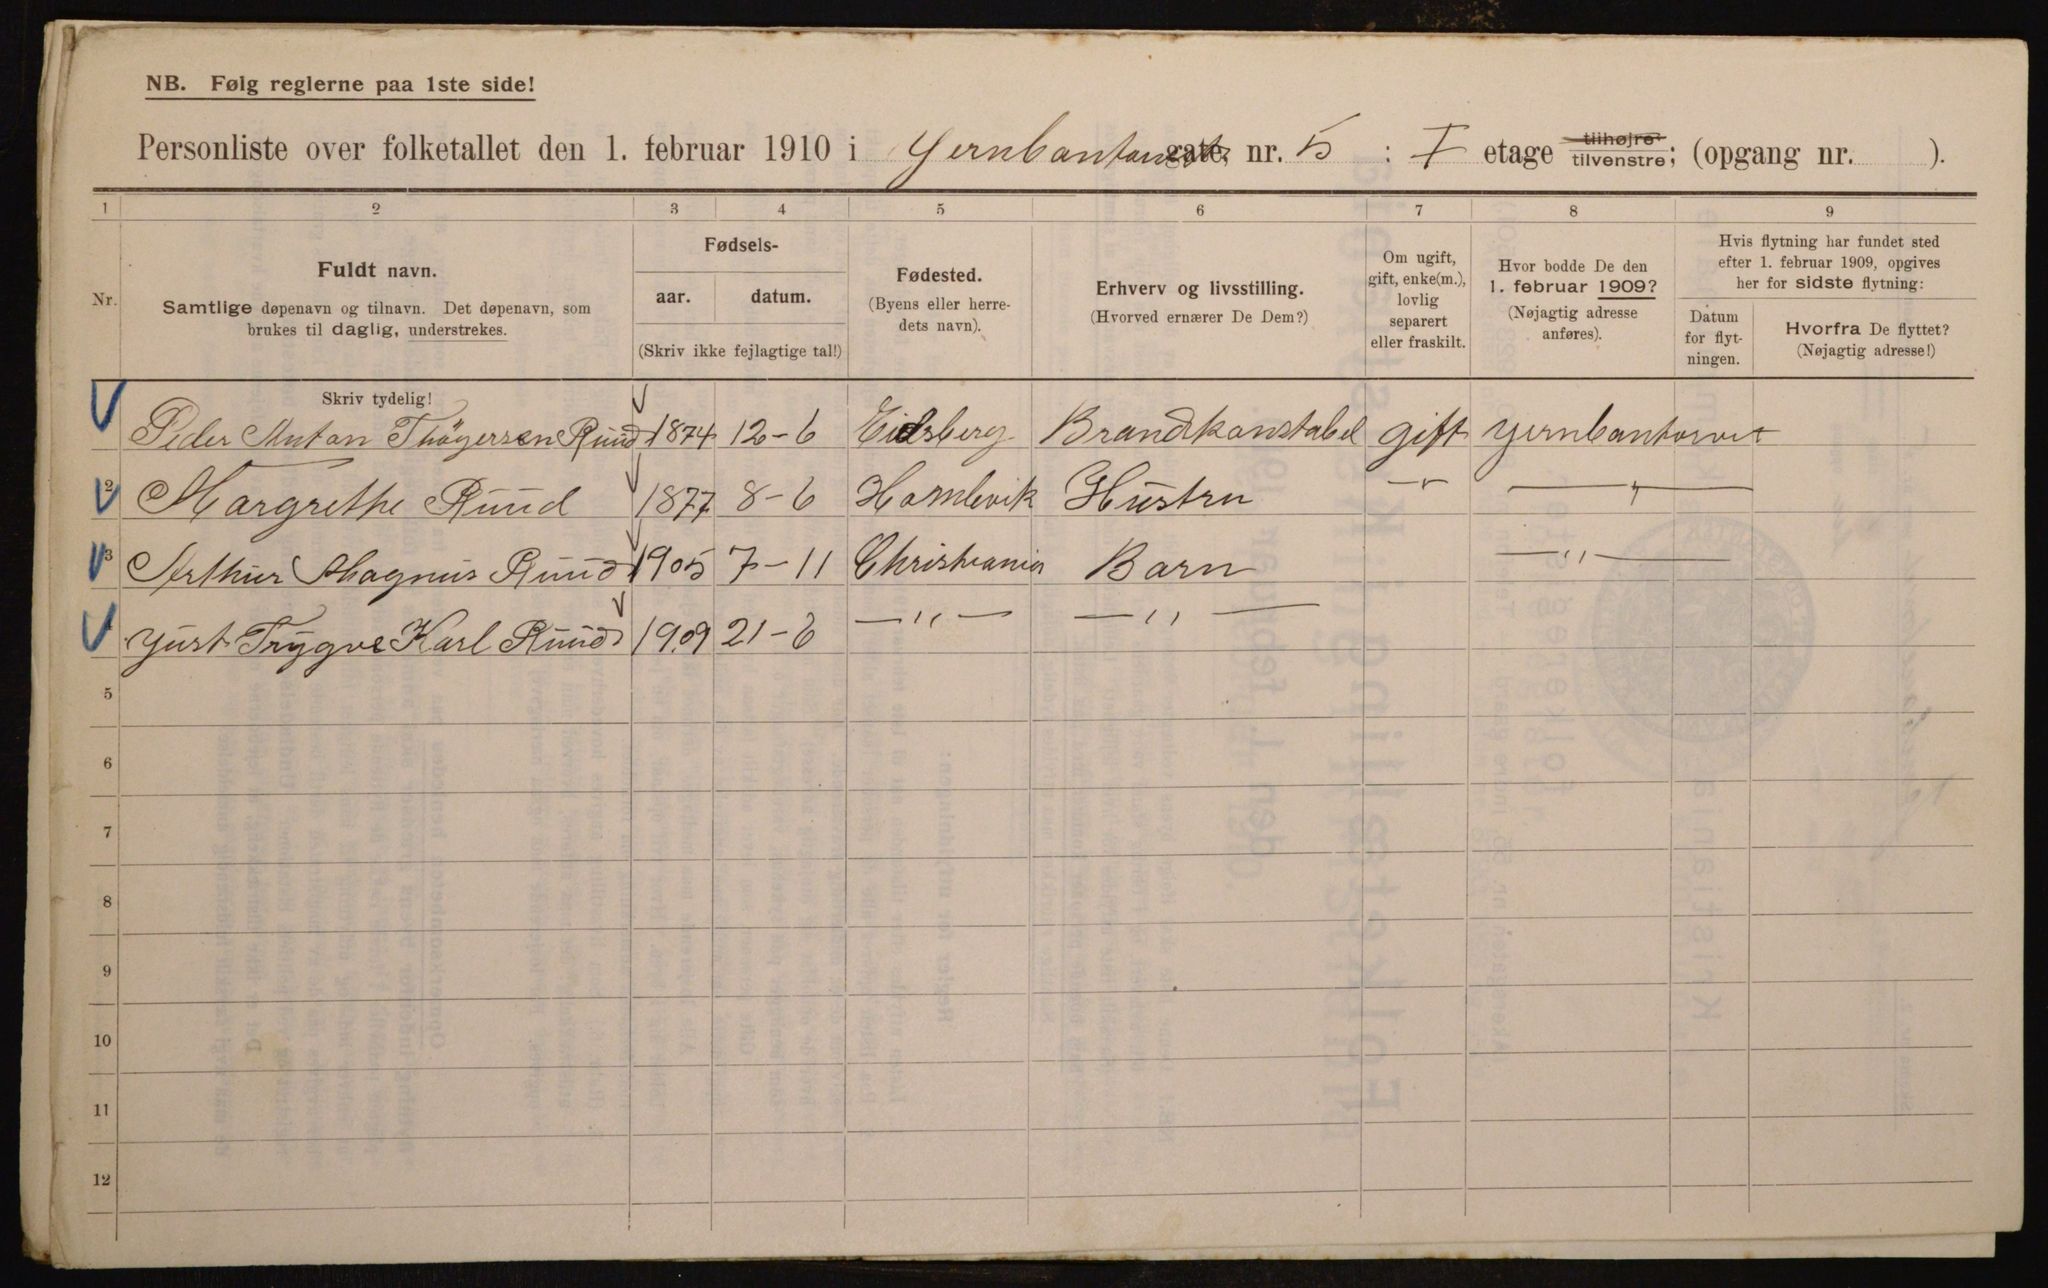 NB. Følg reglerne paa 1ste side!
Personliste over folketallet den 1. februar 1910 i Yernbantorvet gate nr. 5 : I etage tilhøjre tilvenstre; (opgang nr. ).
1 2 3 4 5 6 7 8 9
Nr.
Fuldt navn.
Samtlige døpenavn og tilnavn. Det døpenavn, som
brukes til daglig, understrekes.
Fødsels-
aar. datum.
(Skriv ikke fejlagtige tal!)
Fødested.
(Byens eller herre-
dets navn).
Erhverv og livsstilling.
(Hvorved ernærer De Dem?)
Om ugift,
gift, enke(m.),
lovlig
separert
eller fraskilt.
Hvor bodde De den
1. februar 1909?
(Nøjagtig adresse
anføres).
Hvis flytning har fundet sted
efter 1. februar 1909, opgives
her for sidste flytning:
Datum
for flyt-
ningen.
Hvorfra De flyttet?
(Nøjagtig adresse!)
Skriv tydelig!
Peder Anton Thøgersen Ruud 1874 12-6 Eidsberg Brandkonstabel gift Yernbantorvet
2 Margrethe Ruud 1877 8-6 Hustru -"- -"-
3 Arthur Magnus Ruud 1905 7-11 Christiania Barn -"-
4 Yust Trygve Karl Ruud 1909 21-6 -"- -"-
5
6
7
8
9
10
11
12